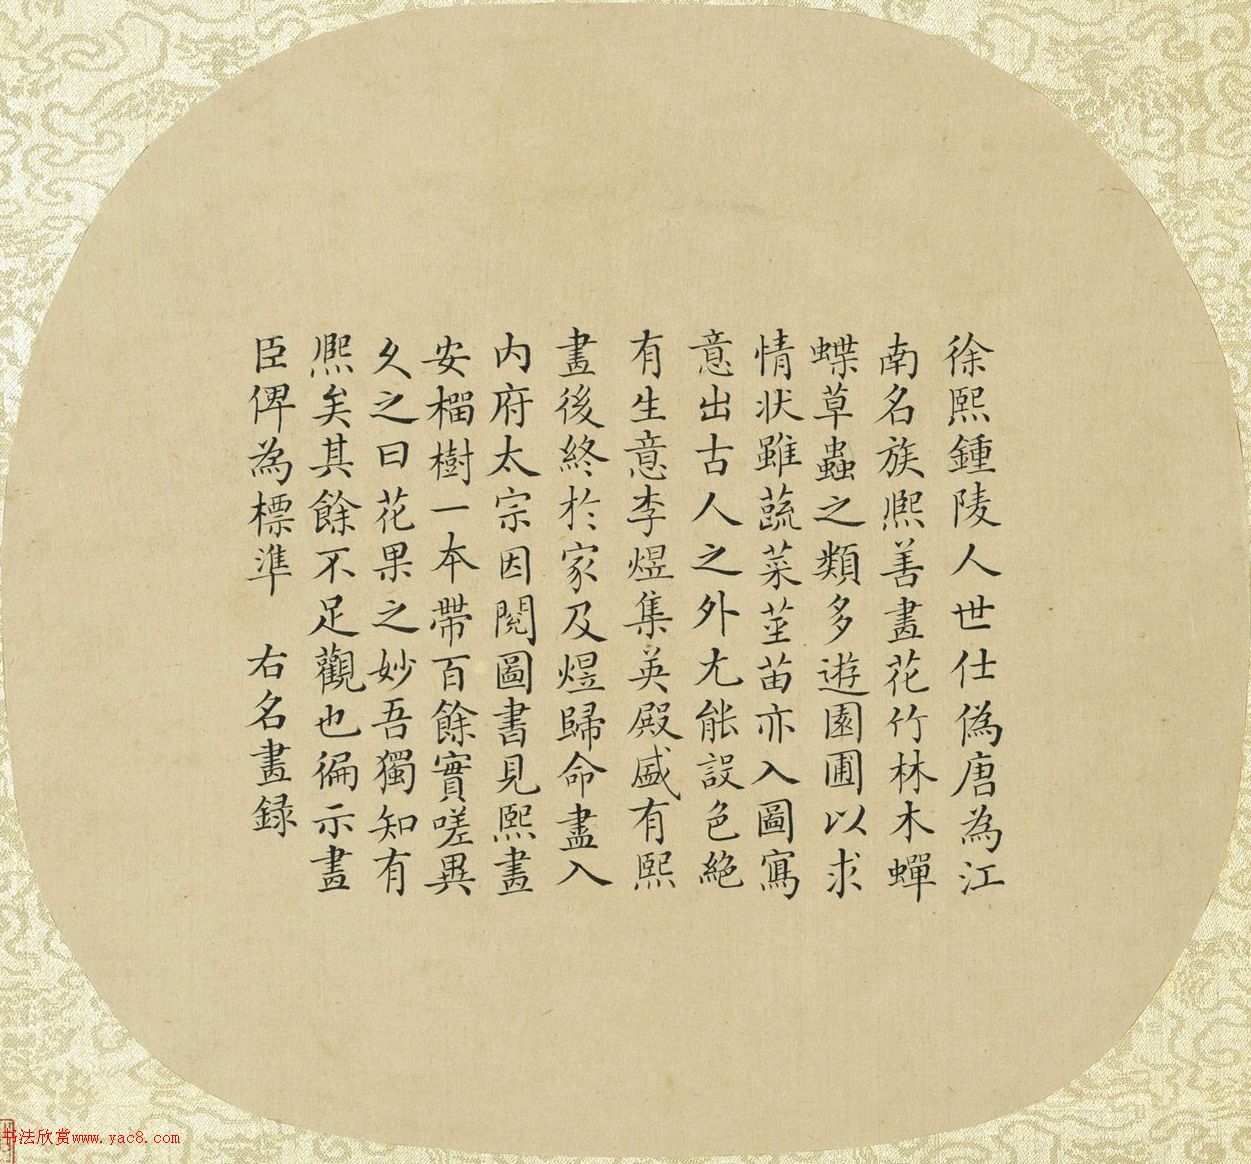 徐熙鍾陵人世仕偽唐為江
南名族熙善畫花竹林木蟬
蝶草蟲之類多遊園圃以求
情狀雖蔬菜莖苗亦入圖寫
意出古人之外尤能設色絕
有生意李煜集英殿盛有熙
畫後終於家及煜歸命盡入
內府太宗因閱圖書見熙畫
安榴樹一本帶百餘實嗟異
久之曰花果之妙吾獨知有
熙矣其餘不足觀也徧示畫
臣俾為標準　右名畫錄
书法欣赏www.yac8.com